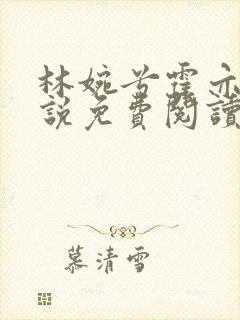 林婉兮霍亦
說免費閱讀
慕清雪